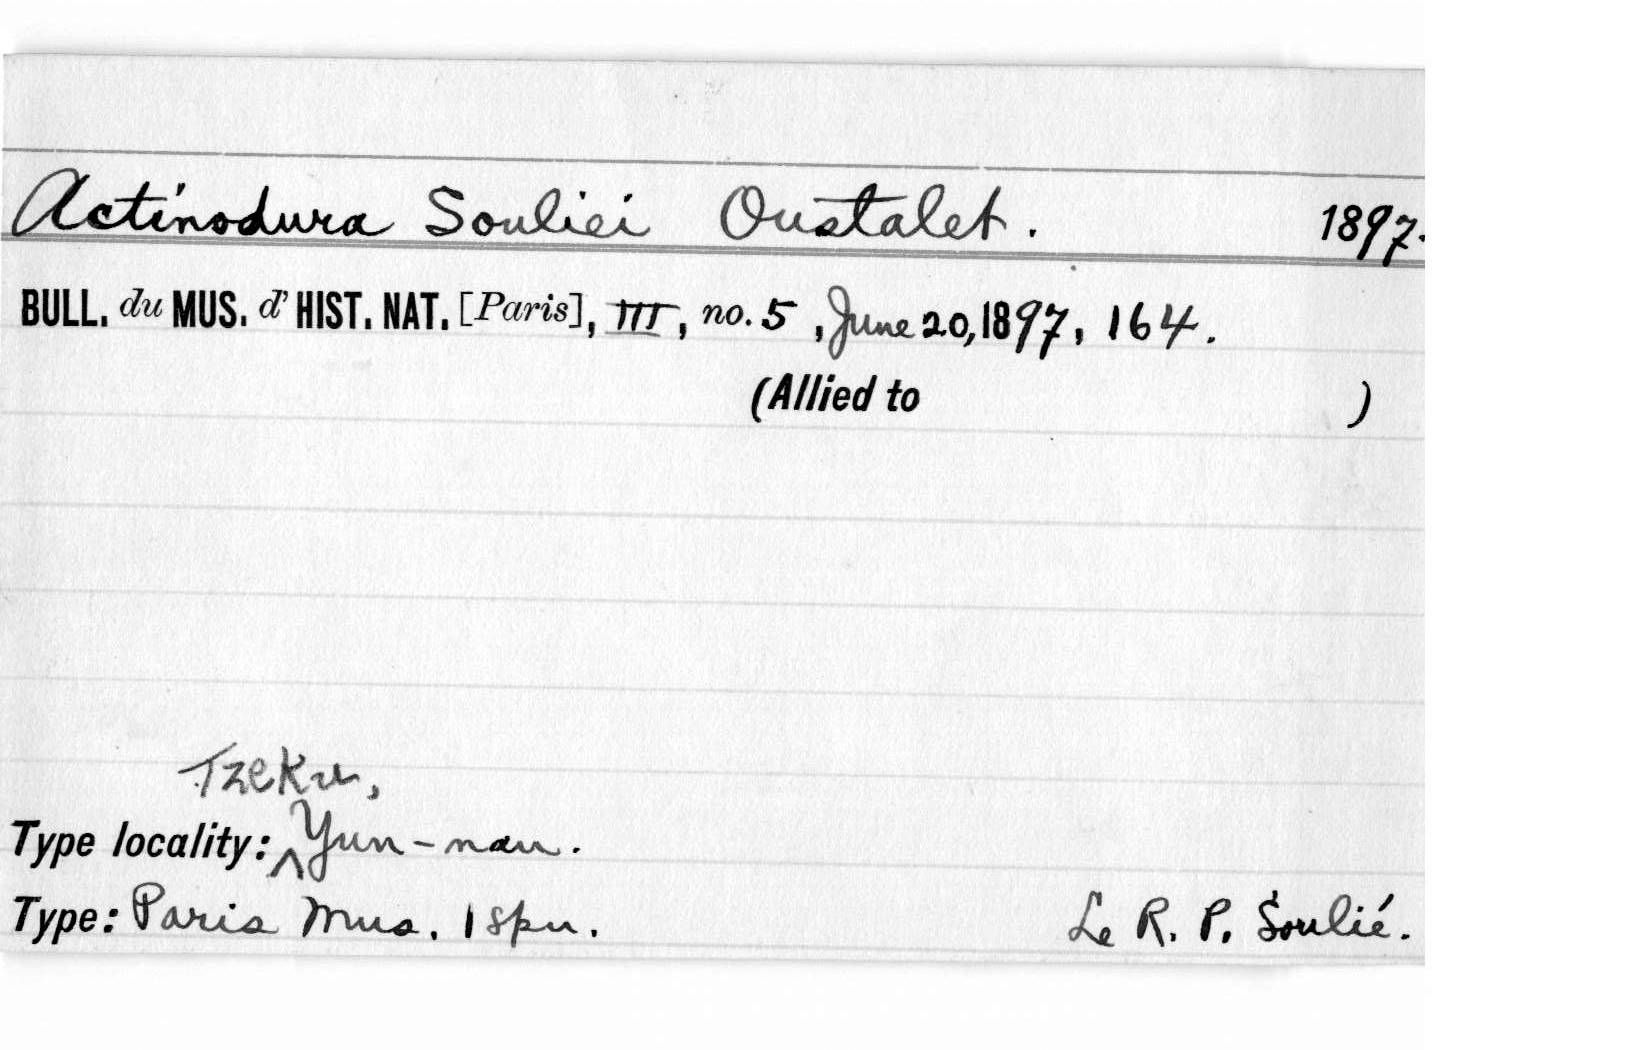 Actinodura Souliei Oustalet. 1897.
BULL. du MUS. d' HIST. NAT. [Paris], III, no. 5, June 20, 1897, 164.
(Allied to )
Tzeku,
Type locality: ^ Yun-nan.
Type: Paris Mus. 1 spn. Le R. P. Soulié.